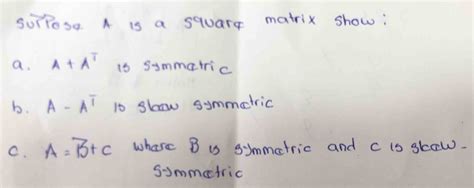 Suppose A is a square matrix show:
a. A + Aᵀ is symmetric
b. A - Aᵀ is skew symmetric
c. A = B + C where B is symmetric and C is skew-
symmetric